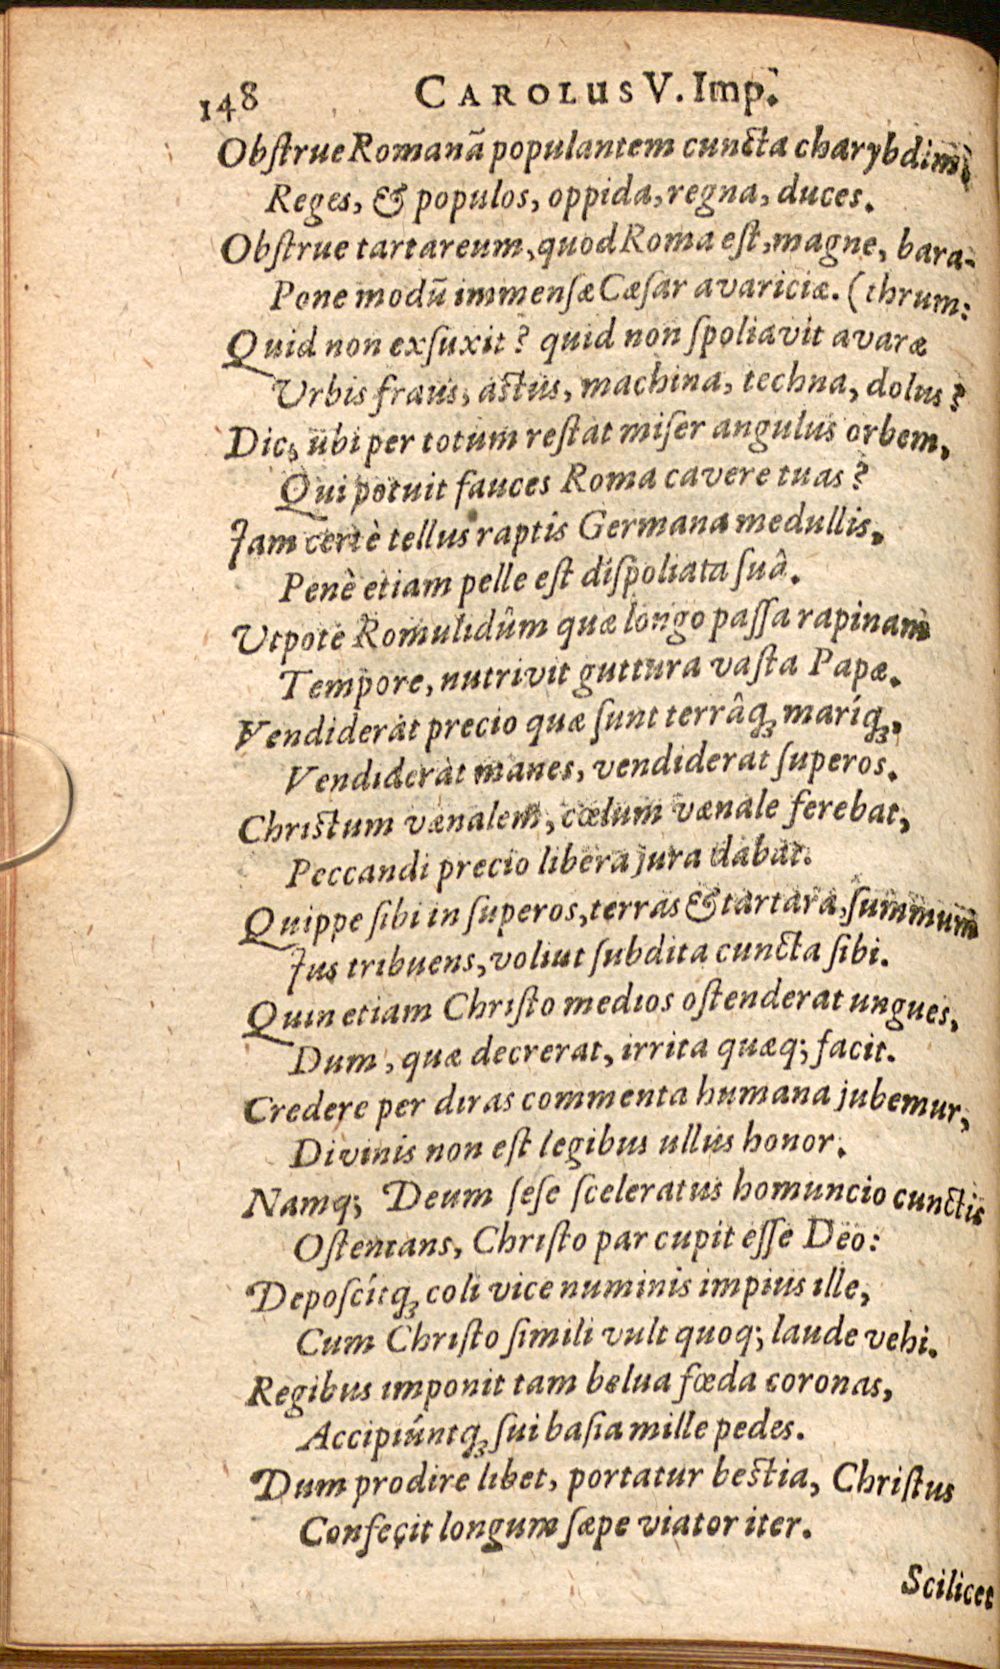 148 CAROLUS V. Imp.
Obſtrue Romanã populantem cuncta charybdim,
Reges, & populos, oppida, regna, duces.
Obſtrue tartareum, quod Roma eſt, magne, bara-
Pone modũ immenſæ Cæſar avariciæ. (thrum:
Quid non exſuxit? quid non ſpoliavit avaræ
Urbis fraus, astus, machina, techna, dolus?
Dic, ubi per totum reſtat miſer angulus orbem,
Qui potuit fauces Roma cavere tuas?
Jam certè tellus raptis Germana medullis,
Penè etiam pelle eſt diſpoliata ſuâ.
Utpote Romulidûm quæ longo paſſa rapinam
Tempore, nutrivit guttura vaſta Papæ.
Vendiderat precio quæ ſunt terrâq́; maríq́;,
Vendiderat manes, vendiderat ſuperos.
Christum vænalem, cœlum vænale ferebat,
Peccandi precio libera jura dabat.
Quippe ſibi in ſuperos, terras & tartara, ſummum
Jus tribuens, voluit ſubdita cuncta ſibi.
Quin etiam Chriſto medios oſtenderat ungues,
Dum, quæ decrerat, irrita quæq; facit.
Credere per diras commenta humana jubemur,
Divinis non eſt legibus ullus honor.
Namq; Deum ſeſe ſceleratus homuncio cunctis
Oſtentans, Chriſto par cupit eſſe Deo:
Depoſcítq; coli vice numinis impius ille,
Cum Chriſto ſimili vult quoq; laude vehi.
Regibus imponit tam belua fœda coronas,
Accipiúntq; ſui baſia mille pedes.
Dum prodire libet, portatur bestia, Chriſtus
Confeçit longum ſæpe viator iter.
Scilicet